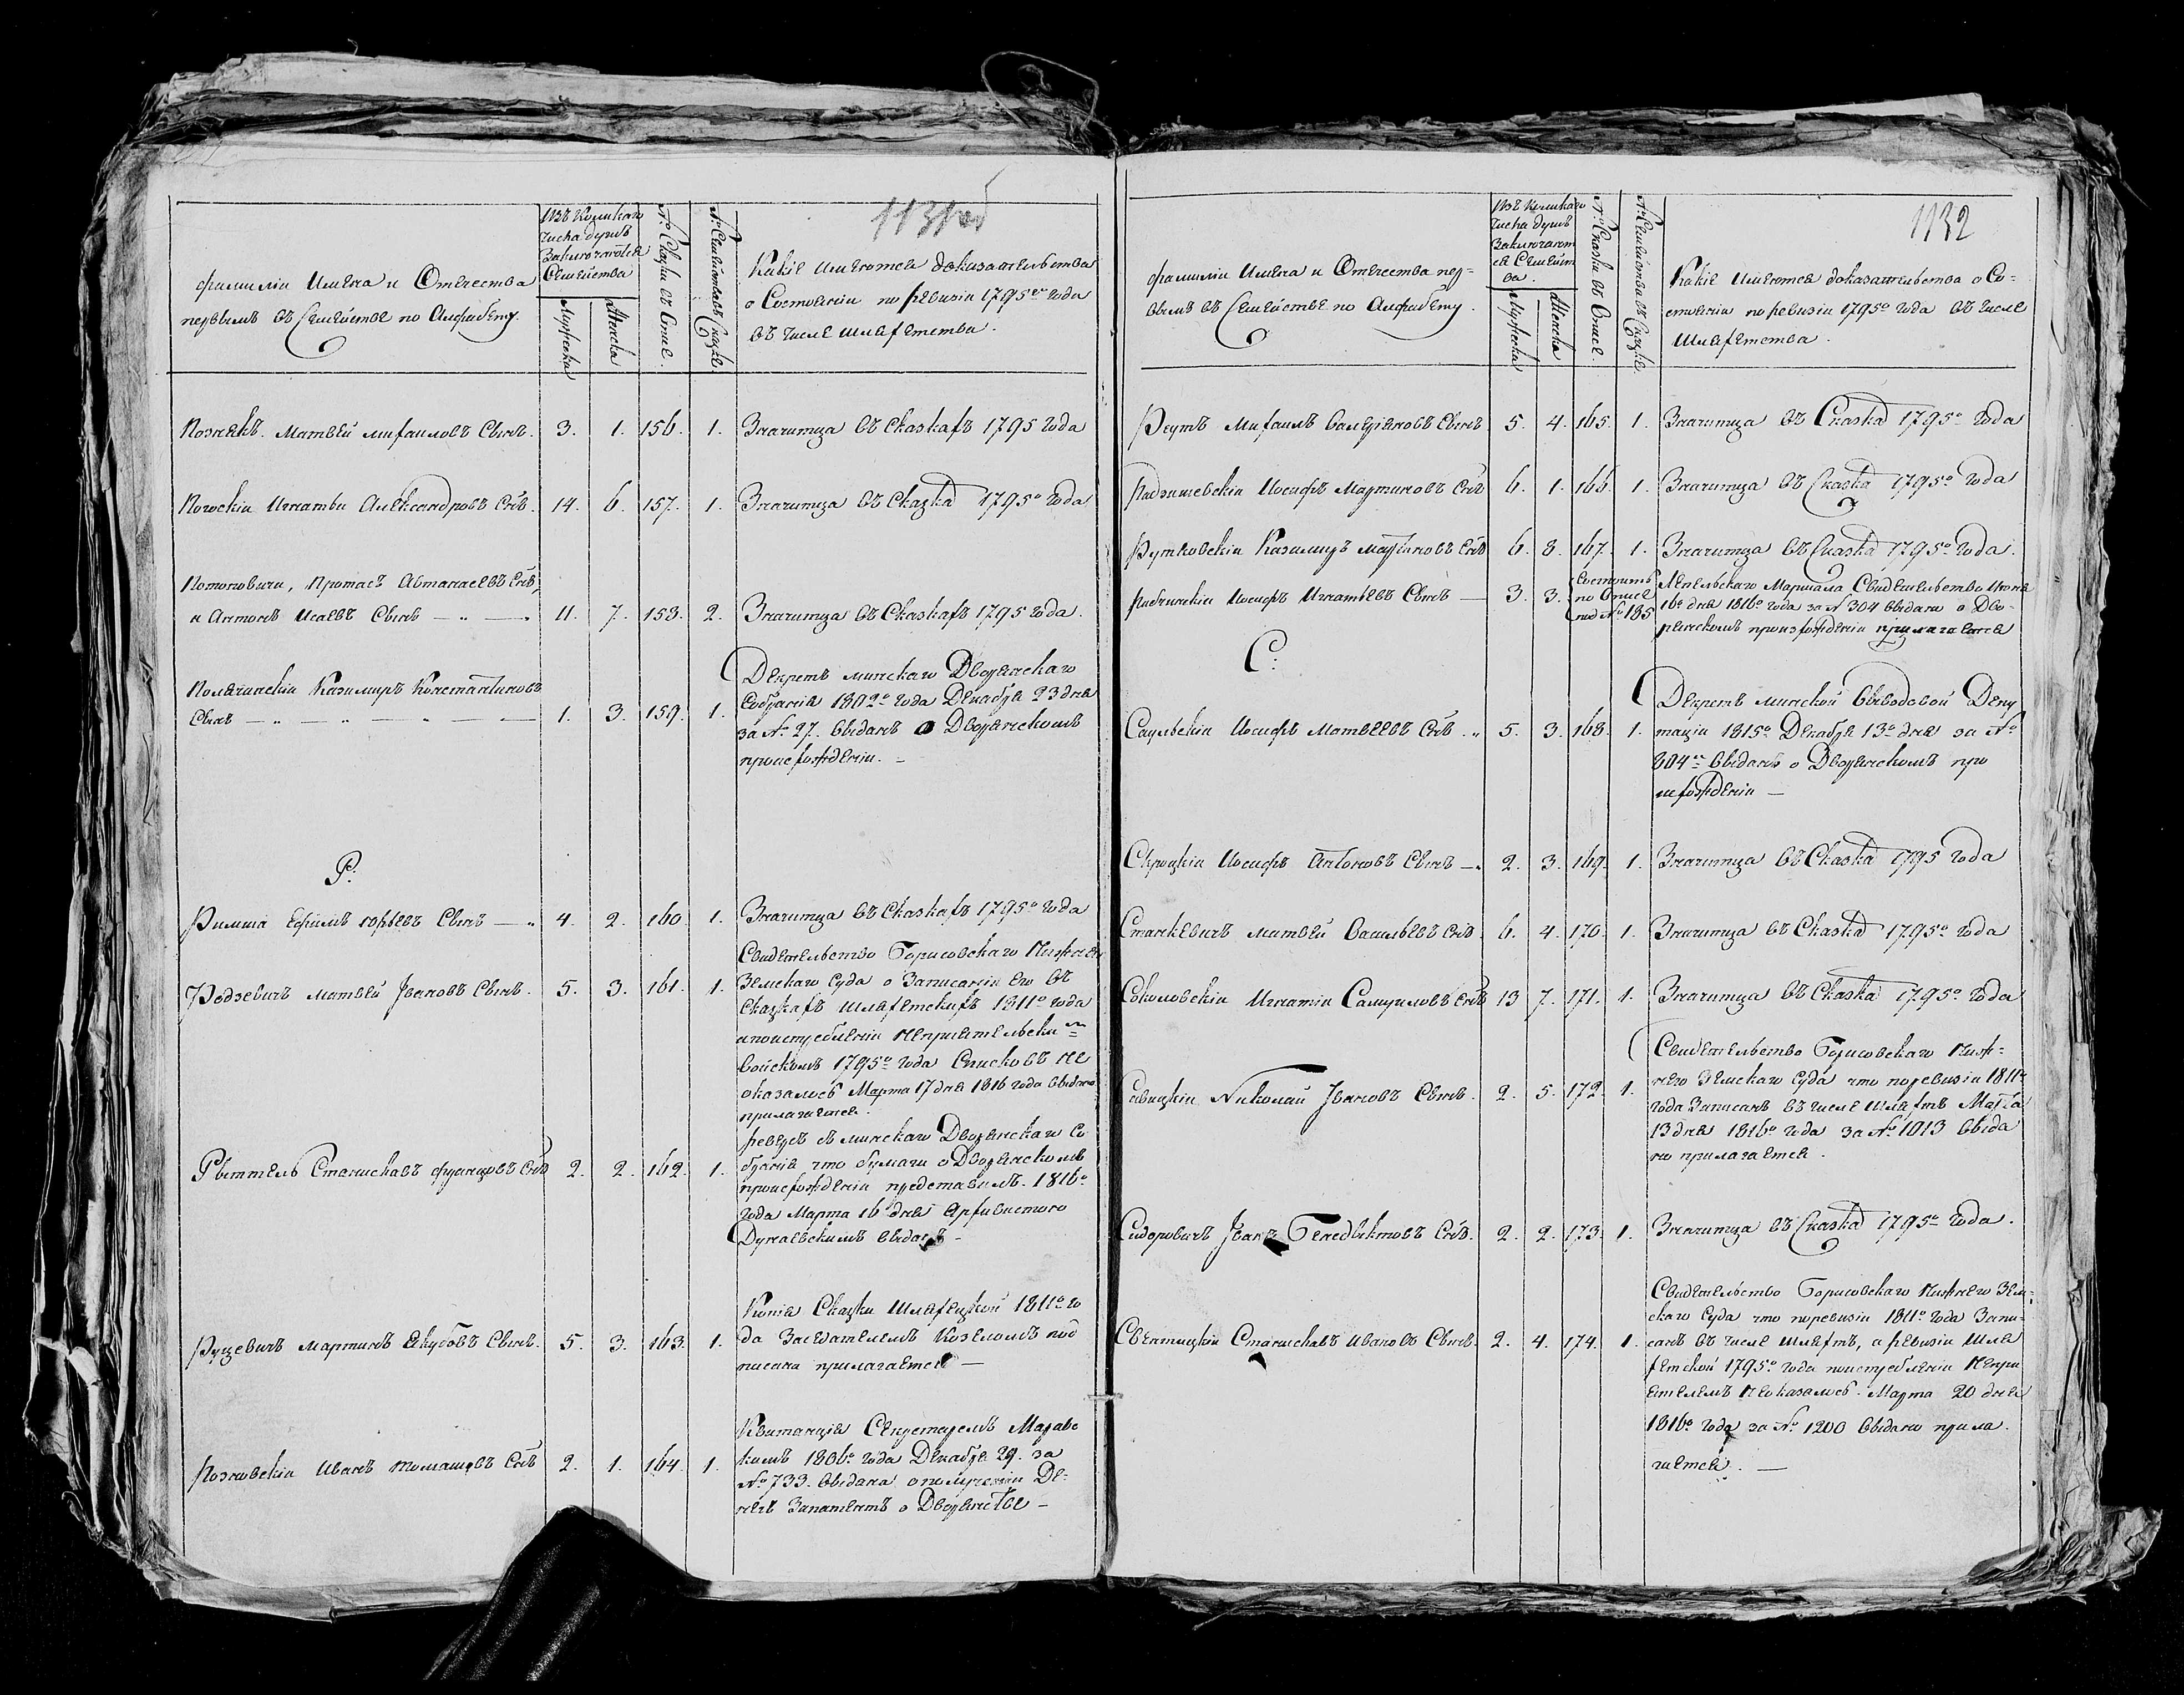 1131 об
фамилии Имена и Отечества
первымъ въ Семействе по Алфавиту
изъ коликаго
числа душъ
Заключаются
Семейства
Мужеска
Женска
№ Сказки въ Описе.
№ Семействъ въ Сказке.
Какие имеются доказательства
о Состоянии по ревизии 1795го года
въ числе шляхетства.
Позняк. Матвей михаиловъ Сынъ. 3. 1. 156. 1. Значитца въ Сказкахъ 1795 года
Почскии Игнатии Александровъ Снъ. 14. 6. 157. 1. Значитца въ Сказка 1795о года
Потоповичи, Протасъ Афанасеевъ Снъ,
и Антонъ Исаевъ Сынъ 11. 7. 158. 2. Значитца въ Сказкахъ 1795 года.
Полячинскии Казимиръ Константиновъ
Сынъ 1. 3. 159. 1.
Декретъ минскаго Дворянскаго
Собрания 1802го года Декабря 23 дня
за № 27. выданъ о Дворянскомъ
происхождении.
Р.
Римша Ефимъ юрьевъ Сынъ 4. 2. 160. 1. Значитца въ Сказкахъ 1795о года
Родзевичъ матвей Ивановъ Сынъ. 5. 3. 161. 1.
Свидетельство Борисовскаго Нижняго
Земскаго Суда о Записании его въ
Сказкахъ шляхетскихъ 1811о года
а поистреблении неприятельски м
войскомъ 1795о года Списковъ не
оказалось Марта 17 дня 1816 года выдано
прилагается.
Рыттель Станиславъ францовъ Снъ 2. 2. 162. 1.
реверсъ съ минскаго Дворянскаго Со
брания что бумаги о Дворянскомъ
происхождении представилъ. 1816о
года Марта 16 дня Архивистого
Дунаевскимъ выданъ
Руцевичъ мартинъ Якубовъ Сынъ. 5. 3. 163. 1.
Копия Сказки Шляхецкой 1811о го
да Заседателемъ Козеломъ под
писана прилагается
Розновскии Иванъ томашовъ Снъ 2. 1. 164. 1.
Квитанция Секретаремъ Маравс
кимъ 1806о года Декабря 29. за
№ 733. выдана о получении Де-
негъ Запатентъ о Дворянстве
1132
фамилии Имена и Отечества пер-
вымъ въ Семействе по Алфавиту.
изъ коликаго
числа душъ
Заключают
ся Семейст
ва.
Мужеска
Женска
№ Сказки въ Описе.
№ Семейства въ Сказке.
Какие имеются доказательства о Со-
стоянии по ревизии 1795о года въ числе
Шляхетства.
Реутъ михаилъ валериановъ Сынъ 5. 4. 165. 1. Значитца въ Сказка 1795о года
Радзишевскии Иосифъ Мартиновъ Снъ 6. 1. 166. 1. Значитца въ Сказка 1795о года
Рутковскии Казимиръ мартиновъ Снъ 6. 8. 167. 1. Значитца въ Сказка 1795о года.
Рабчинскии Иосифъ Игнатьевъ Сынъ 3. 3.
Состоитъ
по Описе
под № 185
Лепельскаго Маршала Свидетельство Июня
16о дня 1816о года за № 304 выдано о Дво-
рянскомъ произхождении прилагается
С:
Саульскии Иосифъ Матвеевъ Снъ. 5. 3. 168. 1.
Декретъ минской выводовой Депу
тации 1815о Декабря 13о дня за №
804м выданъ о Дворянскомъ про
исхождении
Скроцкии Иосифъ Антоновъ Сынъ 2. 3. 169. 1. Значитца въ Сказка 1795 года
Станкевичъ матвей Васильевъ Снъ 6. 4. 170. 1. Значитца въ Сказка 1795о года
Соколовскии Игнатии Самуиловъ Снъ 13 7. 171. 1. Значитца въ Сказка 1795о года
Савицкии Николай Ивановъ Сынъ. 2. 5. 172. 1.
Свидетельство Борисовскаго Ниж-
него Земскаго Суда что поревизии 1811о
года Записанъ въ числе шляхтъ Марта
13 дня 1816о года за № 1013 выда
но прилагается.
Сидоровичъ Иванъ Бенедыктовъ Снъ. 2. 2. 173. 1. Значитца въ Сказка 1795о года.
Святицкии Станиславъ Ивановъ Сынъ. 2. 4. 174. 1.
Свидетельство Борисовскаго Нижнего Зем-
скаго Суда что поревизии 1811о года Запи-
санъ въ числе Шляхтъ, а ревизии шля
хетской 1795о года поистреблении Непри
ятелемъ Неоказалось. Марта 20 дня
1816о года за № 1200 выдано прила
гается.